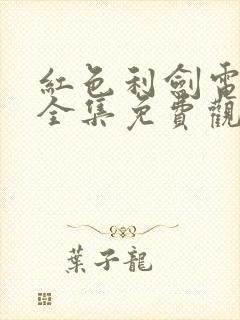 紅色利劍電
全集免費觀
葉子龍